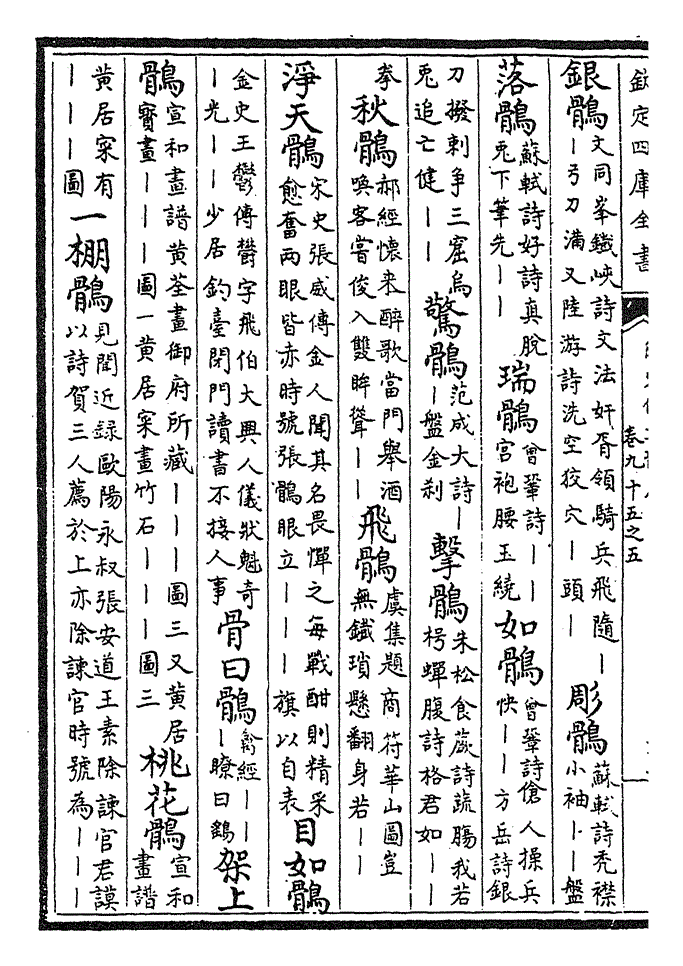 欽定四庫全書
卷九十五之五
銀鶻文同峯鐵峽詩文法奸胥領騎兵飛隨｜
｜弓刀滿又陸游詩洗空狡穴｜頭｜
彫鶻蘇軾詩禿襟
小袖｜｜盤
落鶻蘇軾詩好詩真脫
兎下筆先｜｜
瑞鶻曾鞏詩｜｜
宮袍腰玉繞
如鶻曾鞏詩傖人操兵
快｜｜方岳詩銀
刀撥剌争三窟烏
兎追亡健｜｜
驚鶻范成大詩｜
｜盤金刹
擊鶻朱松食蕨詩疏膓我若
枵蟬腹詩格君如｜｜
拳
秋鶻郝經懷来醉歌當門舉酒
喚客嘗俊入雙眸聳｜｜
飛鶻虞集題商符華山圖豈
無鐵瑣懸翻身若｜｜
淨天鶻宋史張威傳金人聞其名畏憚之每戰酣則精采
愈奮兩眼皆赤時號張鶻眼立｜｜｜旗以自表
目如鶻
金史王鬱傳鬱字飛伯大興人儀狀魁奇
｜光｜｜少居釣臺閉門讀書不接人事
骨曰鶻禽經｜｜
｜瞭曰鷂
架上
鶻宣和畫譜黄荃畫御府所藏｜｜｜圖三又黄居
寶畫｜｜｜圖一黄居寀畫竹石｜｜｜圖三
桃花鶻宣和
畫譜
黄居寀有
｜｜｜圖
一棚鶻見聞近録歐陽永叔張安道王素除諫官君謨
以詩賀三人薦於上亦除諫官時號為｜｜｜